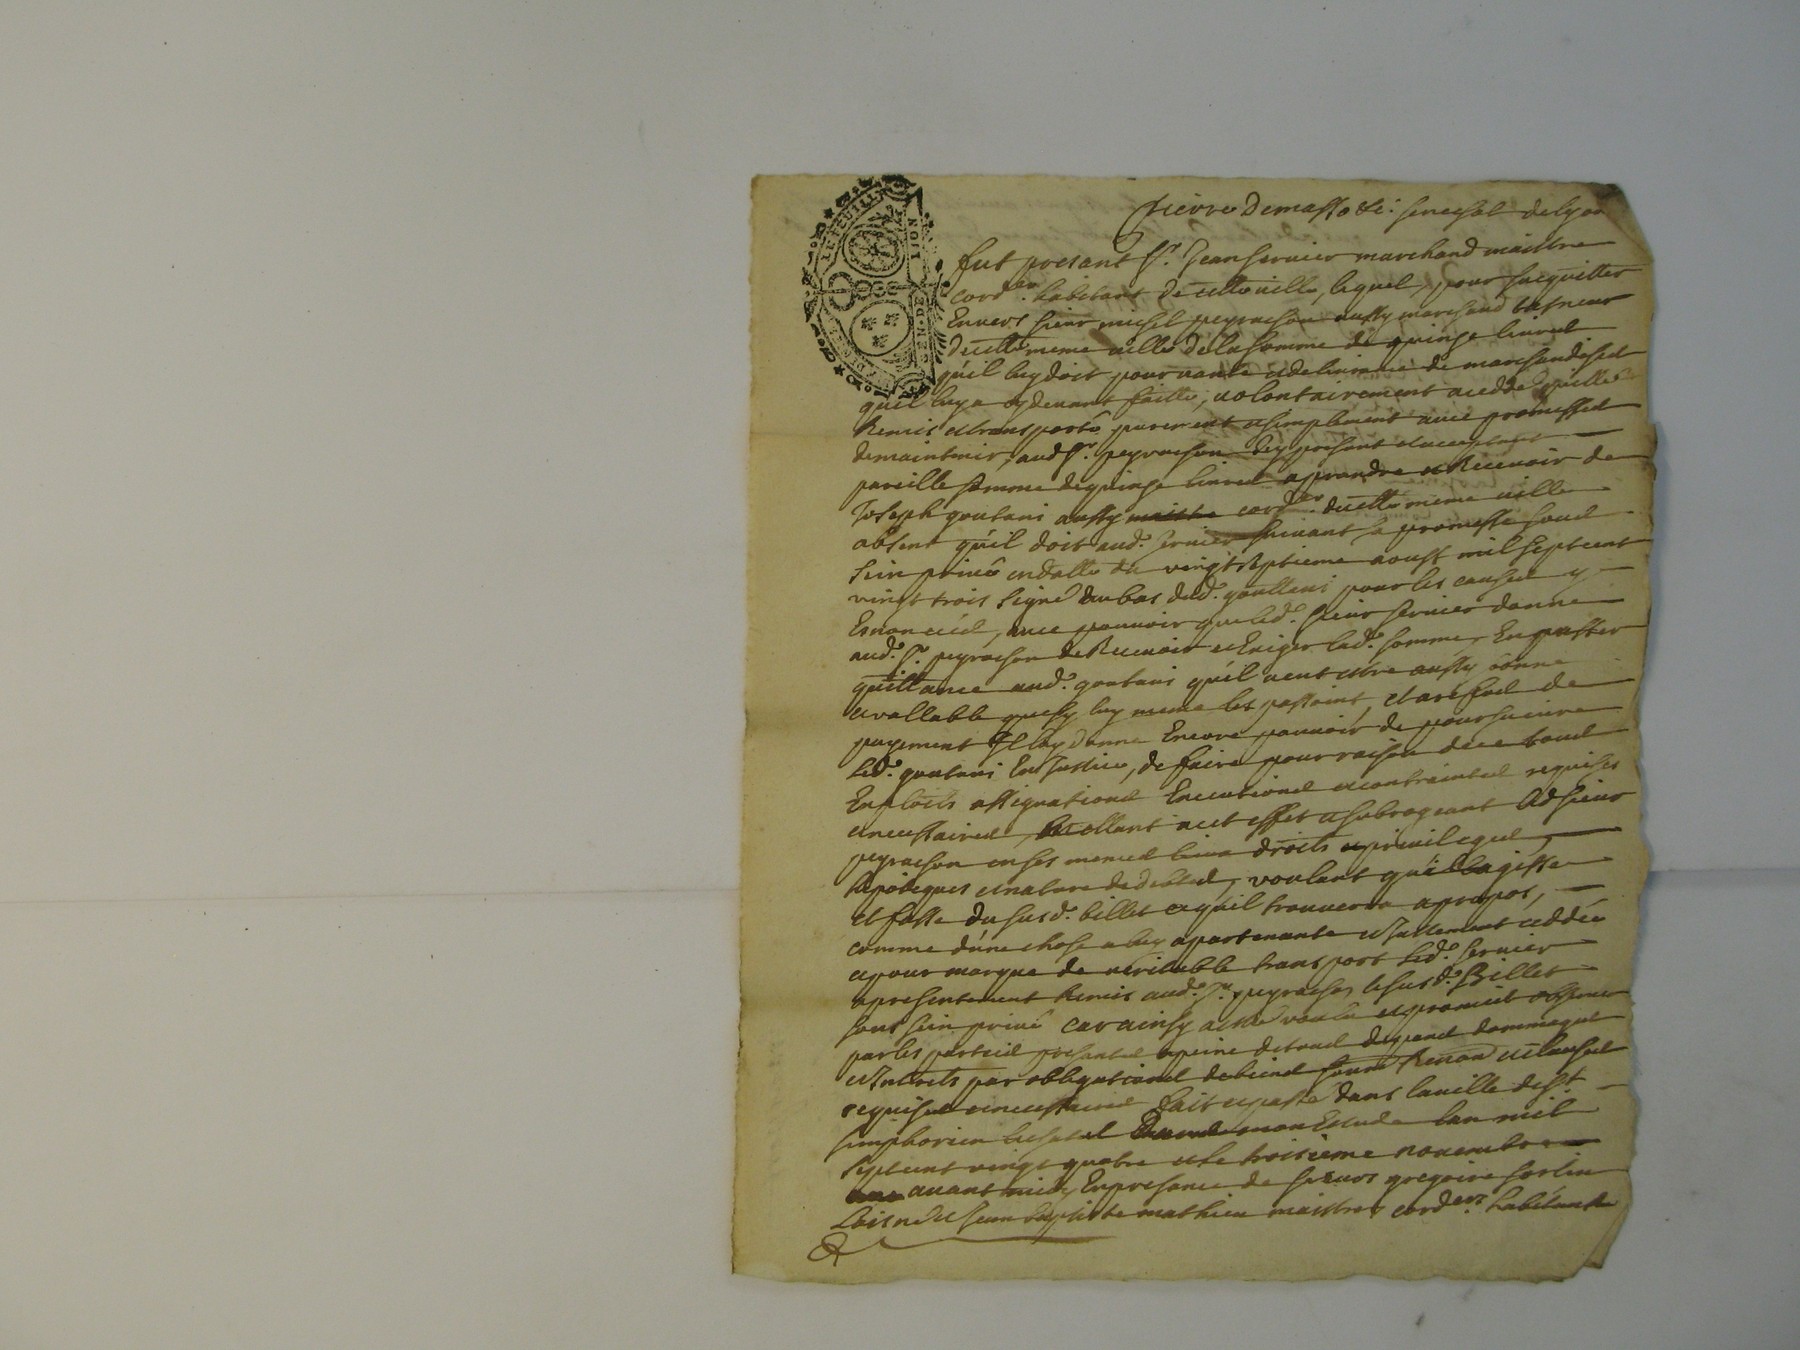 Pierre Demasso &c. senechal de Lyon
fut presant Sr. Jean Servier marchand maistre
corder. habitant de cette ville, lequel pour sacquitter
Envers sieur michel peyrachon aussy marchand taneur
decette meme ville de la somme de quinze livres
quil luy doit pour vante et delivrance de marchandises
quil luy a cydevant faitte, volontairement a cedde quitte
Remis et transporté purement et simplement avec promesses
demaintenir, aud Sr. peyrachon icy present et acceptant
pareille somme de quinze livres a prandre et Recevoir de
Joseph goutani aussy cordier. decette meme ville
absent quil doit aud. servier suivant sa promesse sous
sein privé en datte du vingt septieme aoust mil sept cent
vingt trois signé au bas dud. gouttani pour les causes y
Enoncées, avec pouvoir que led. sieur servier donne
aud. Sr. peyrachon de Recevoir et Exiger lad. somme, En passer
quittance aud. goutani quil veut estre aussy bonne
et vallable que sy luy meme les passoint, et a refus de
payement Il luy donne Encore pouvoir de poursuivre
led. goutani En Justice, de faire pour raison de ce tous
Exploits assignations Executions et contraintes requises
et necessaires, mettant a cet effet et subrogeant led sieur
peyrachon en ses memes lieux droits et privileges,
hipoteques et nature de debtes, voulant quil agisse
et fasse du susd. billet ce quil trouvera a propos,
comme dune chose a luy apartenante et Justement ceddée
et pour marque de veritable transport led. servier
a presentement Remis aud. Sr. peyrachon le susd. Billet
sous sein privé car ainsy a esté voulu et promis observer
par les parties presantes a peine de tous depans dommages
et Interets par obligations de biens Renon et clauses
requises et necessaires fait et passé dans la ville de St
simphorien le chatel mon Estude lan mil
sept cent vingt quatre et le troisieme novembre
avant midy En presance de sieurs gregoire
Laisné et Jean Baptiste mathieu maistres corders. habitants